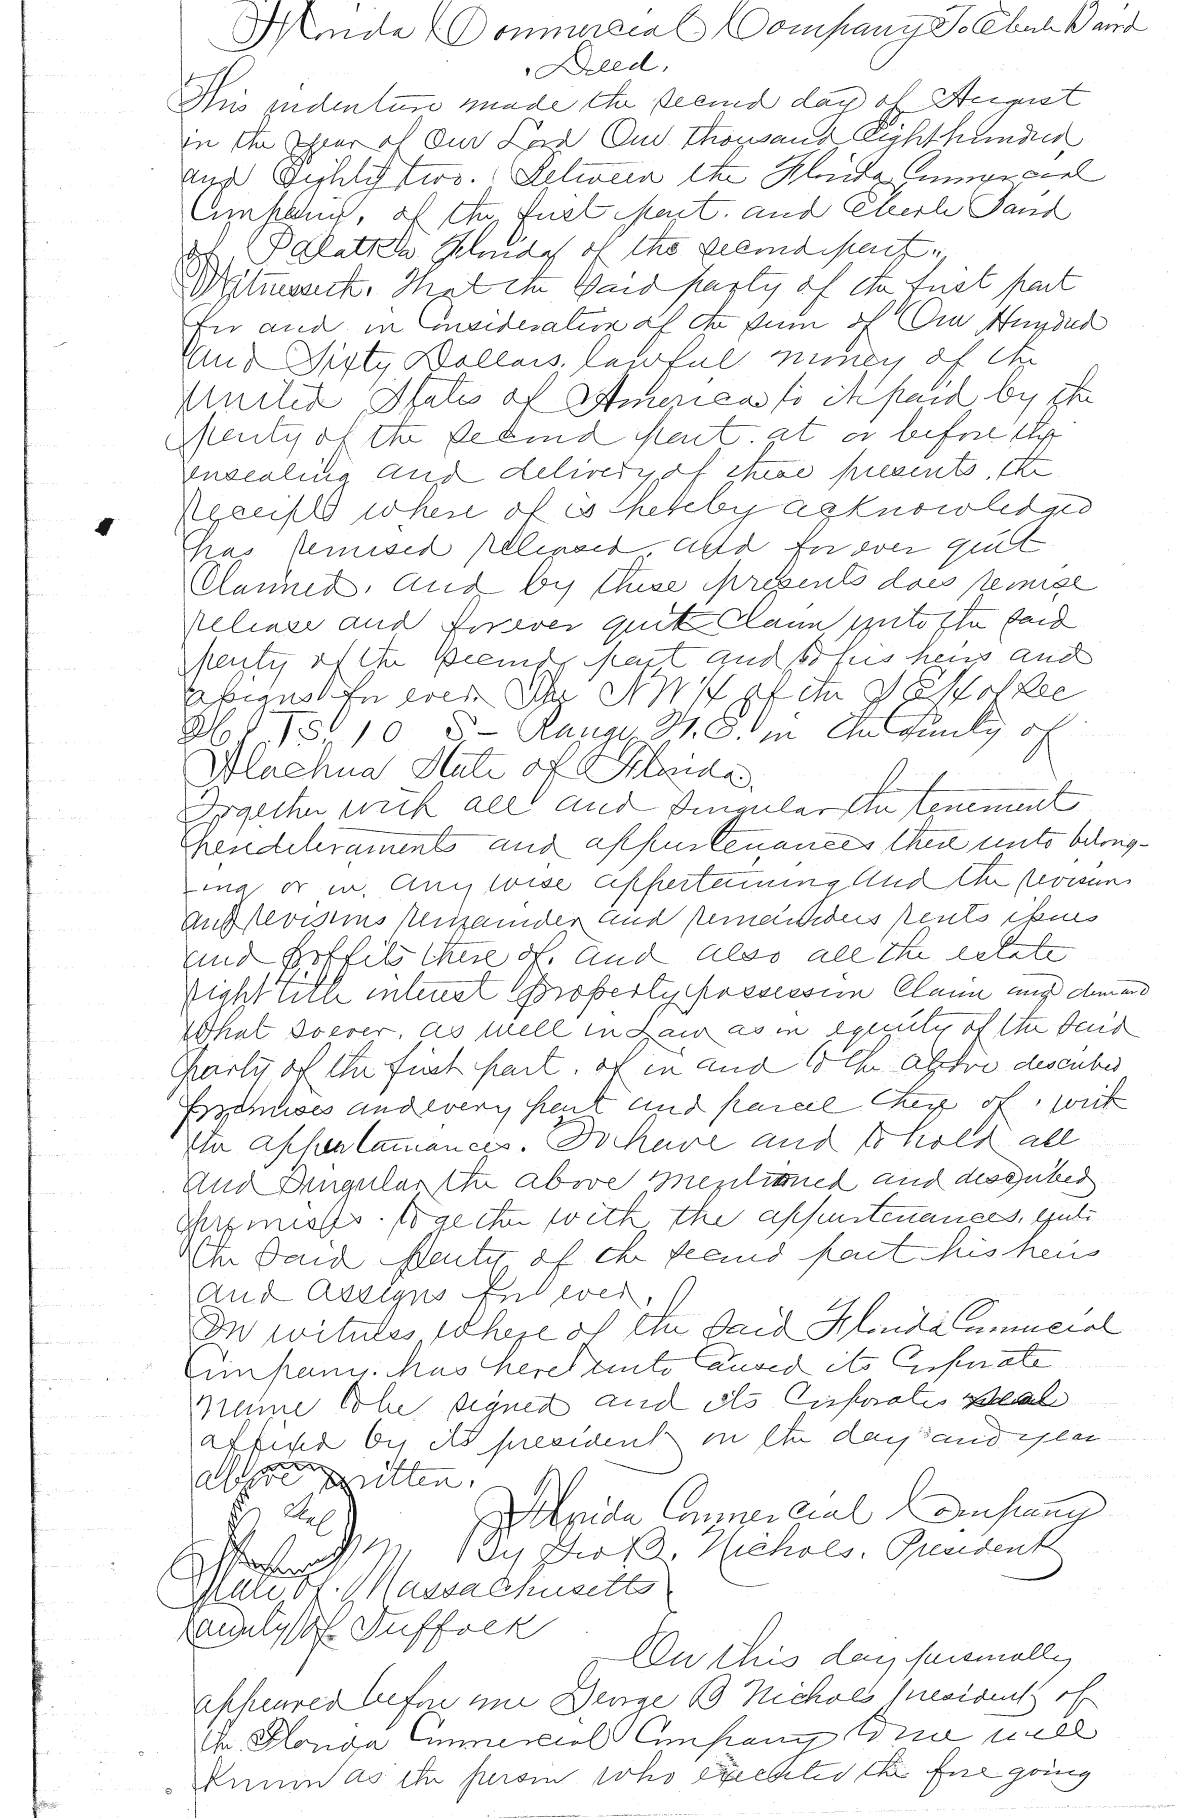 Florida Commercial Company To Eberle Baird
Deed.
This indenture made the second day of August
in the year of Our Lord One thousand Eight hundred
and Eighty two. Between the Florida Commercial
Company, of the first part. and Eberle Baird
of Palatka Florida of the second part.
Witnesseth. That the Said party of the first part
for and in Consideration of the sum of One Hundred
and Sixty Dollars, lawful money of the
United States of America to it paid by the
party of the second part. at or before the
ensealing and delivery of these presents, the
receipt where of is hereby acknowledged
has remised released, and for ever quit
Claimed. and by these presents does remise
release and forever quit Claim unto the said
party of the second part and to his heirs and
assigns for ever. The NW¼ of the of Sec
T.S. 10 S - Range in the County of
Alachua State of Florida.
Together with all and Singular the tenement
and appurtenances there unto belong-
-ing or in any wise appertaining And the revision
and revisions remainder and remainders rents issues
and proffits there of. and also all the estate
right title interest property possession Claim and demand
What soever. as well in Law as in equity of the Said
party of the first part. of in and to the above described
premises and every part and parcel there of. with
the To have and to hold all
and Singular the above mentioned and described
premises. together with the appurtenances. unto
the Said party of the second part his heirs
and assigns for ever.
In witness where of the Said Florida Commercial
Company. has here unto Caused its Corporate
name to be signed and its Corporate seal
affixed by its president on the day and year
above written.
Seal Florida Commercial Company
By Geo B. Nichols. President
State of Massachusetts
County of Suffock
On this day personally
appeared before me George B Nichols president of
the Florida Commercial Company to me well
Known as the person who executed the fore going